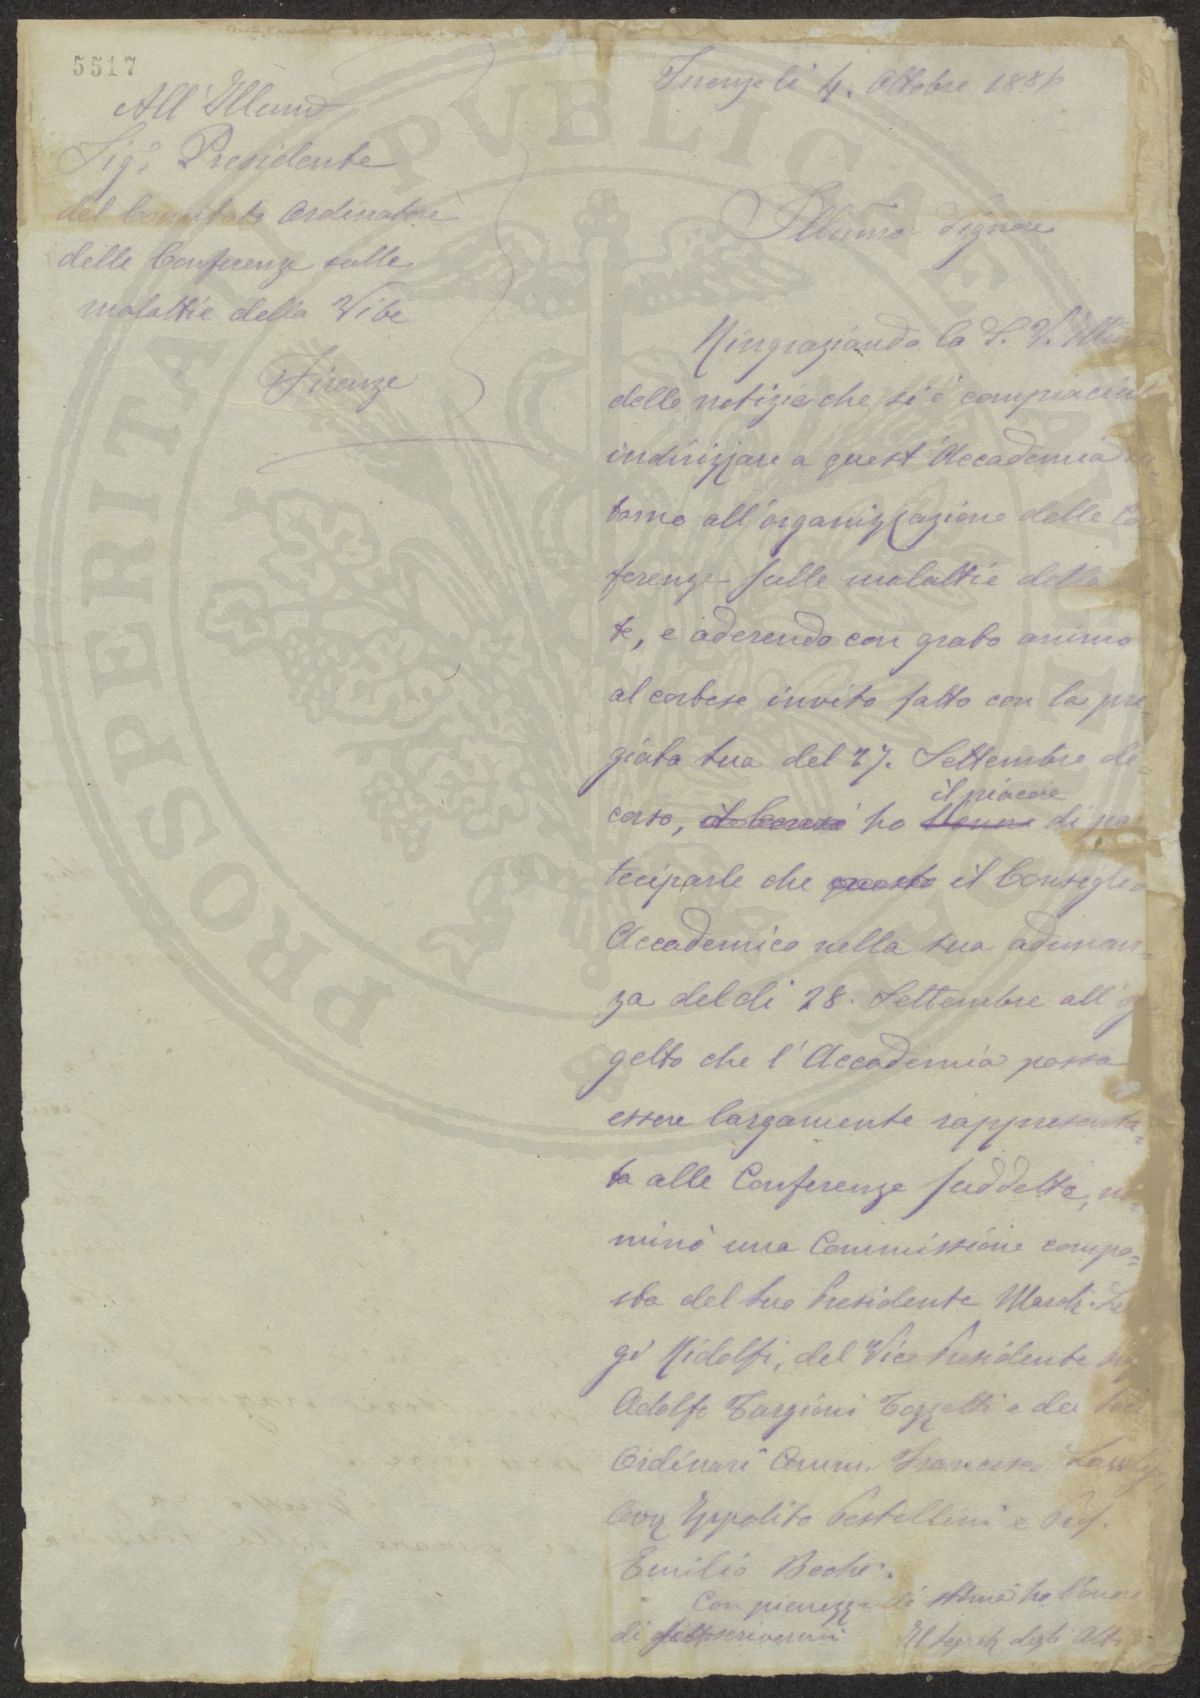 5517
All' Illmo
Sigr Presidente
del Comitato Ordinatore
delle Conferenze sulle
malattie della Vite
Firenze
Firenze li 4. Ottobre 188
Illumo Signore
Ringraziando la S. V. Illma
delle notizie che si è compiaciut
indirizzare a quest' Accademia in-
torno all'organizzazione delle Con
ferenze sulle malattie della
te, e aderendo con grato animo
al cortese invito fatto con la pre-
giata sua del 27. Settembre de-
corso, ho il piacere di par
teciparle che questo il Consiglio
Accademico nella sua adunan-
za del dì 28. Settembre all' og
getto che l' Accademia possa
essere largamente rappresenta-
ta alle Conferenze suddette, no-
minò una Commissione compo-
sta del suo Presidente March. Lu
gi Ridolfi, del Vice Presidente
Adolfo Targioni Tozzetti e dei
Ordinari Comm. Francesco
Cav. Yppolito Pestellini e Prof.
Emilio Bechi.
Con pienezza di stima ho l'onore
di sottoscrivermi Il Segret. degli Atti
PROSPERITATI PUBLICAE